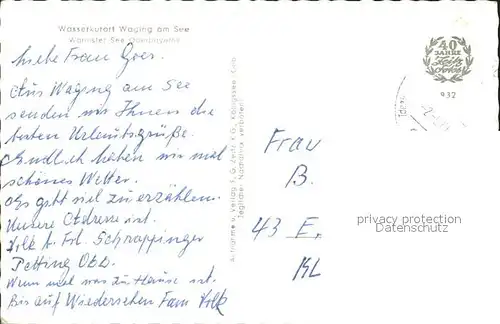 Wasserkurort Waging am See
Wärmster See Oberbayerns
Liebe Frau Goes.
Aus Waging am See
senden wir Ihnen die
besten Urlaubsgrüße.
Endlich haben wir mal
schönes Wetter.
Es gibt viel zu erzählen.
Unsere Adresse ist.
Volk b. Frl. Schrappinger
Petting Obb.
Wenn mal was zu Hause ist.
Bis auf Wiedersehen Fam Volk
Aufnahme u. Verlag F. G. Zeitz K.G., Königssee/Obb.
(Jegliche Nachahmung verboten)
40
JAHRE
Zeitz
Fotos
932
Frau
B.
43 E.
KL
privacy protection
Datenschutz